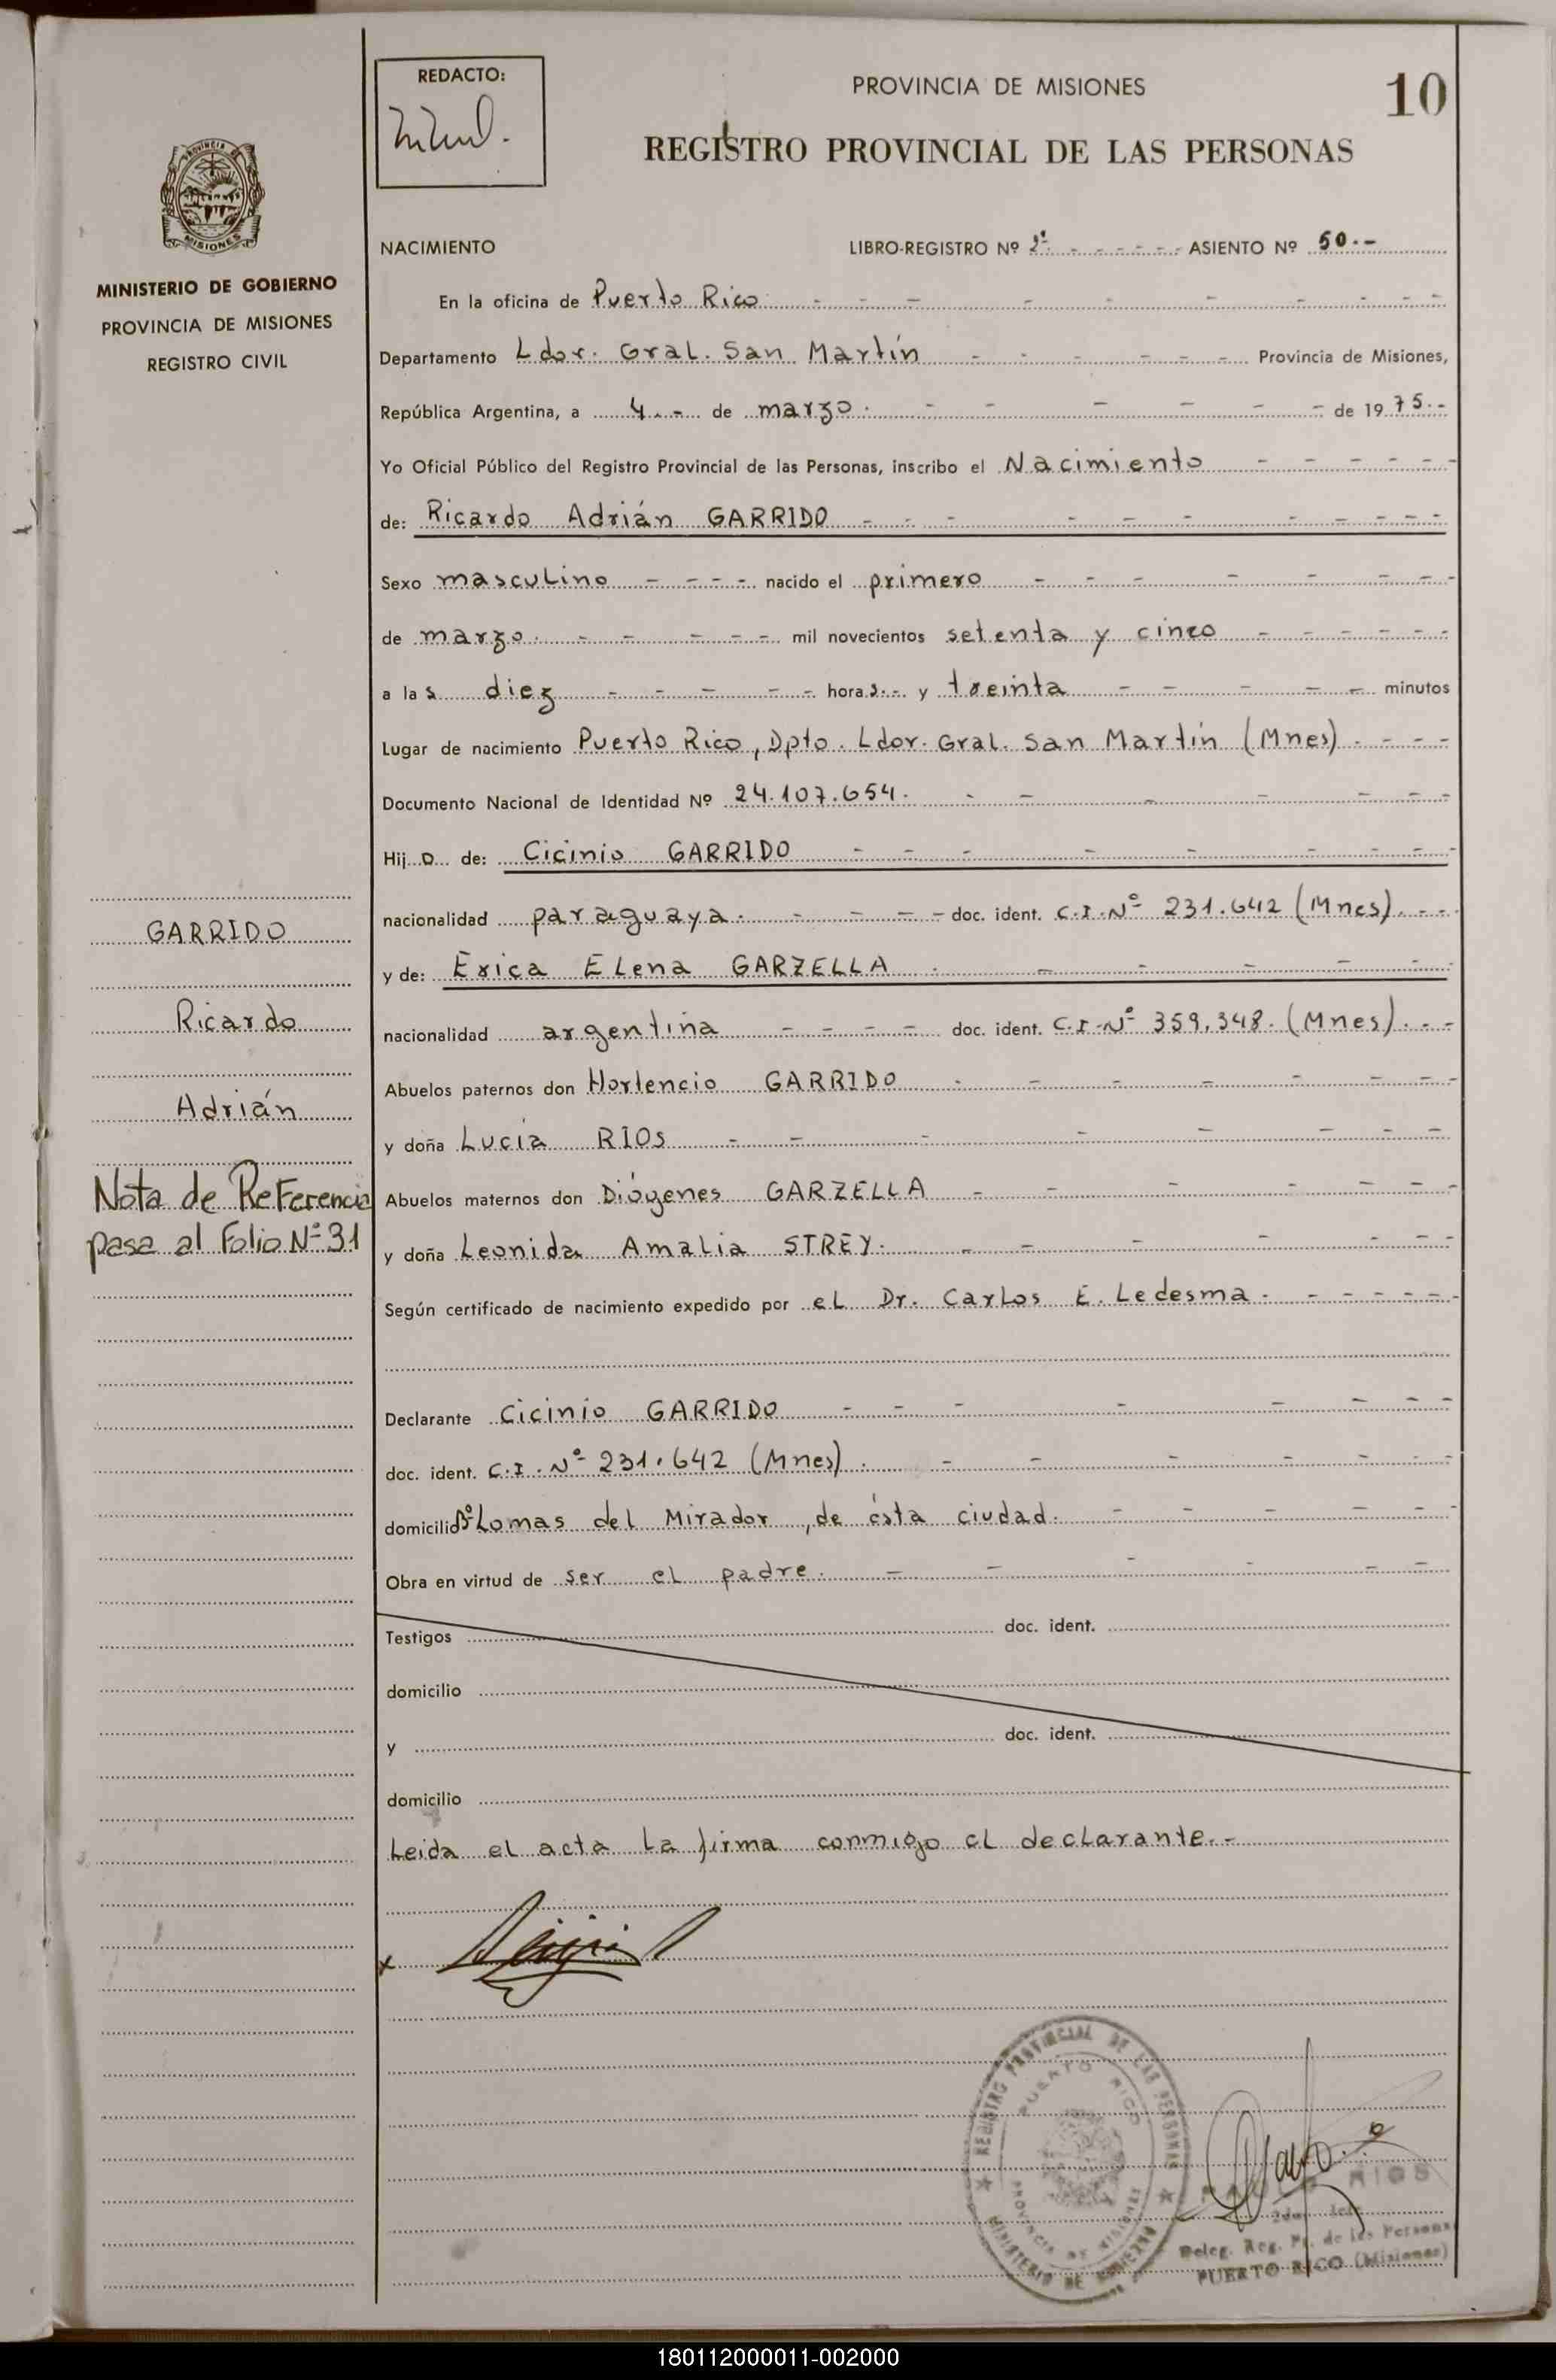 REDACTO:
PROVINCIA DE MISIONES
10
REGISTRO PROVINCIAL DE LAS PERSONAS
PROVINCIA DE
MISIONES
MINISTERIO DE GOBIERNO
PROVINCIA DE MISIONES
REGISTRO CIVIL
NACIMIENTO LIBRO-REGISTRO Nº 2º - - - - - - ASIENTO Nº 50.--
En la oficina de Puerto Rico
Departamento Ldor. Gral. San Martín Provincia de Misiones,
República Argentina, a 4.- de marzo. de 1975.-
Yo Oficial Público del Registro Provincial de las Personas, inscribo el Nacimiento
de: Ricardo Adrián GARRIDO
Sexo masculino nacido el primero
de marzo. mil novecientos setenta y cinco
a las diez horas.- y treinta minutos
Lugar de nacimiento Puerto Rico, Dpto. Ldor. Gral. San Martín (Mnes).
Documento Nacional de Identidad Nº 24.107.654.
Hijo de: Cicinio GARRIDO
nacionalidad paraguaya. doc. ident. C.I.Nº 231.642 (Mnes).
y de: Erica Elena GARZELLA
nacionalidad argentina doc. ident. C.I.Nº 359.348. (Mnes).
Abuelos paternos don Hortencio GARRIDO
y doña Lucía RIOS
Abuelos maternos don Diógenes GARZELLA
y doña Leonida Amalia STREY.
Según certificado de nacimiento expedido por el Dr. Carlos E. Ledesma.
Declarante Cicinio GARRIDO
doc. ident. C.I. Nº 231.642 (Mnes).
domicilio Bº Lomas del Mirador, de ésta ciudad.
Obra en virtud de ser el padre.
Testigos doc. ident.
domicilio
y doc. ident.
domicilio
Leida el acta la firma conmigo el declarante.-
x
GARRIDO
Ricardo
Adrián
Nota de Referencia
pasa al Folio Nº 31
REGISTRO PROVINCIAL DE LAS PERSONAS
PUERTO RICO
PROVINCIA DE MISIONES
MINISTERIO DE GOBIERNO
RIOS
Deleg. Reg. P. de las Personas
PUERTO RICO (Misiones)
180112000011-002000